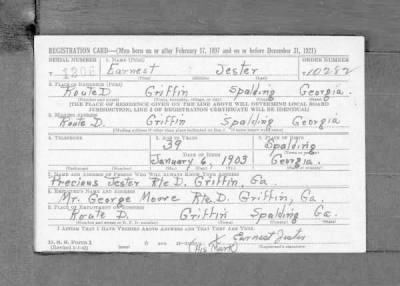 REGISTRATION CARD—(Men born on or after February 17, 1897 and on or before December 31, 1921)
SERIAL NUMBER 1. NAME (Print) ORDER NUMBER
T 1206 Earnest Jester T 10282
(First) (Middle) (Last)
2. PLACE OF RESIDENCE (Print)
Route D. Griffin Spalding Georgia.
(Number and street) (Town, township, village, or city) (County) (State)
[THE PLACE OF RESIDENCE GIVEN ON THE LINE ABOVE WILL DETERMINE LOCAL BOARD
JURISDICTION; LINE 2 OF REGISTRATION CERTIFICATE WILL BE IDENTICAL]
3. MAILING ADDRESS
Route D. Griffin Spalding Georgia
[Mailing address if other than place indicated on line 2. If same insert word same]
4. TELEPHONE 5. AGE IN YEARS 6. PLACE OF BIRTH
39 Spalding
DATE OF BIRTH (Town or county)
January 6, 1903 Georgia.
(Exchange) (Number) (Mo.) (Day) (Yr.) (State or country)
7. NAME AND ADDRESS OF PERSON WHO WILL ALWAYS KNOW YOUR ADDRESS
Precious Jester Rte D. Griffin, Ga.
8. EMPLOYER'S NAME AND ADDRESS
Mr. George Moore Rte. D. Griffin, Ga.
9. PLACE OF EMPLOYMENT OR BUSINESS
Route D. Griffin Spalding Ga.
(Number and street or R. F. D. number) (Town) (County) (State)
I AFFIRM THAT I HAVE VERIFIED ABOVE ANSWERS AND THAT THEY ARE TRUE.
D. S. S. FORM 1
X Earnest Jester
(His Mark)